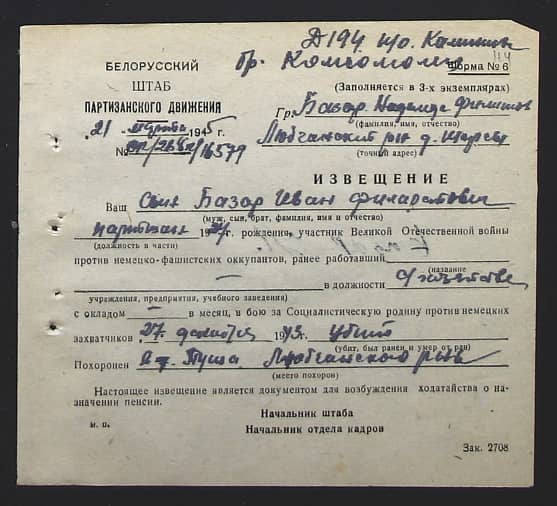 Д 194 п/о. Калинин
Гр. Комсомол
44
БЕЛОРУССКИЙ
ШТАБ
ПАРТИЗАНСКОГО ДВИЖЕНИЯ
21 марта 1945 г.
№ 16579
Форма № 6
(Заполняется в 3-х экземплярах)
Гр. Базар Надежде
(фамилия, имя, отчество)
Любчанский рн д.
(точный адрес)
ИЗВЕЩЕНИЕ
Ваш сын Базар Иван Филаретович
(муж, сын, брат, фамилия, имя и отчество)
партизан 1924 рождения, участник Великой Отечественной войны
(должность в части)
против немецко-фашистских оккупантов, ранее работавший
(название
— в должности
учреждения, предприятия, учебного заведения)
с окладом — в месяц, в бою за Социалистическую родину против немецких
захватчиков 27. декабря 1943. убит
(убит, был ранен и умер от ран)
Похоронен Любчанского р-на
(место похорон)
Настоящее извещение является документом для возбуждения ходатайства о на-
значении пенсии.
Начальник штаба
М. П.
Начальник отдела кадров
Зак. 2708